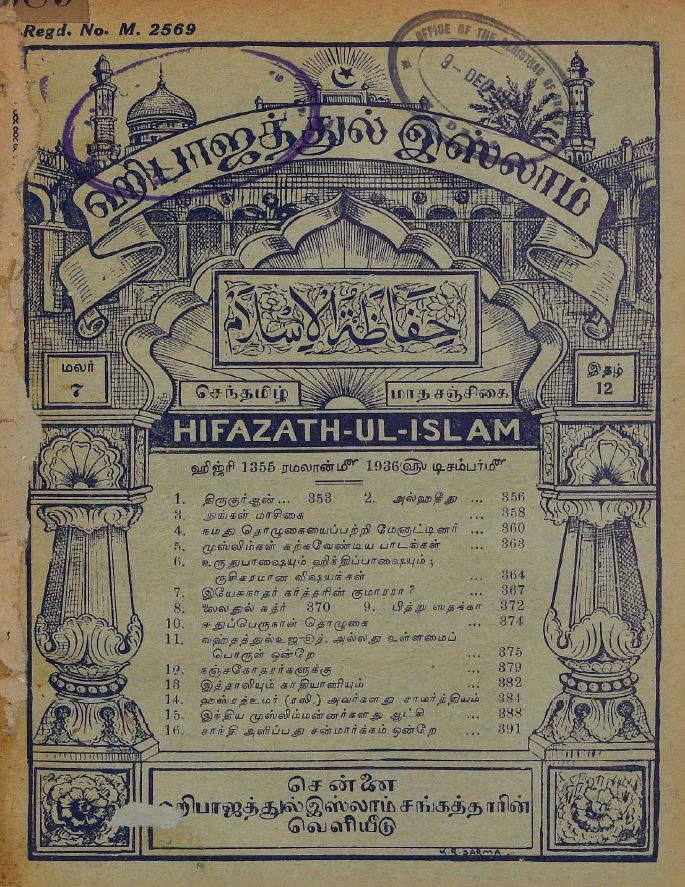 Regd. No. M. 2569
OFFICE OF THE REGISTRAR OF
9 - DEC
ஹிபாஜத்துல் இஸ்லாம்
حفاظة الاسلام
மலர்
7
இதழ்
12
செந்தமிழ்
மாதசஞ்சிகை
HIFAZATH-UL-ISLAM
ஹிஜ்ரி 1355 ரமலான்மீ 1936௵ டிசம்பர்மீ
1. திருகுர்ஆன் ... 353 2. அல்ஹதீது ... 356
3. நங்கள் மாசிகை ... 358
4. நமது தொழுகையைப்பற்றி மேனாட்டினர் ... 360
5. முஸ்லிம்கள் கற்கவேண்டிய பாடங்கள் ... 363
6. உருதுபாஷையும் ஹிந்திப்பாஷையும் ;
ருசிகரமான விஷயங்கள் ... 364
7. இயேசுநாதர் கர்த்தரின் குமாரரா ? ... 367
8. லைலதுல் கத்ர் 370 9. பித்று ஸதக்கா 372
10. ஈதுப்பெருநாள் தொழுகை ... 374
11. வஹதத்துல்உஜூத், அல்லது உள்ளமைப்
பொருள் ஒன்றே ... 375
12. நஞ்சகோதரர்களுக்கு ... 379
13 இத்தாலியும் காதியானியும் ... 382
14. ஹஸ்ரத்உமர் (ரலி.) அவர்களது சாமர்த்தியம் 384
15. இந்திய முஸ்லிம்மன்னர்களது ஆட்சி ... 388
16. சாந்தி அளிப்பது சன்மார்க்கம் ஒன்றே ... 391
சென்னை
ஹிபாஜத்துல்இஸ்லாம் சங்கத்தாரின்
வெளியீடு
K.R. SARMA